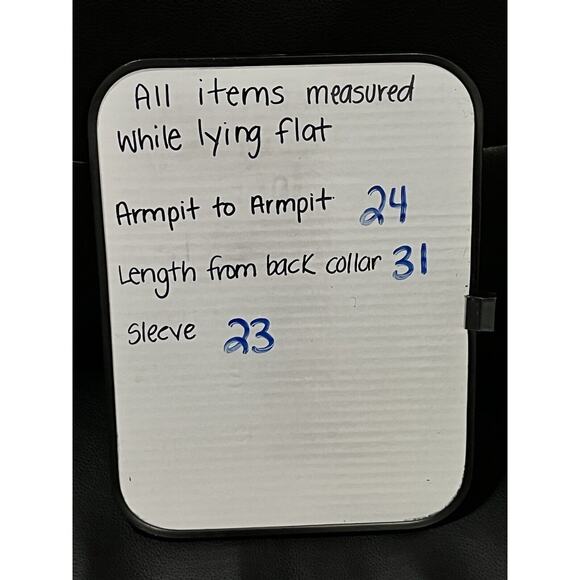 All items measured
while lying flat
Armpit to Armpit 24
Length from back collar 31
Sleeve 23